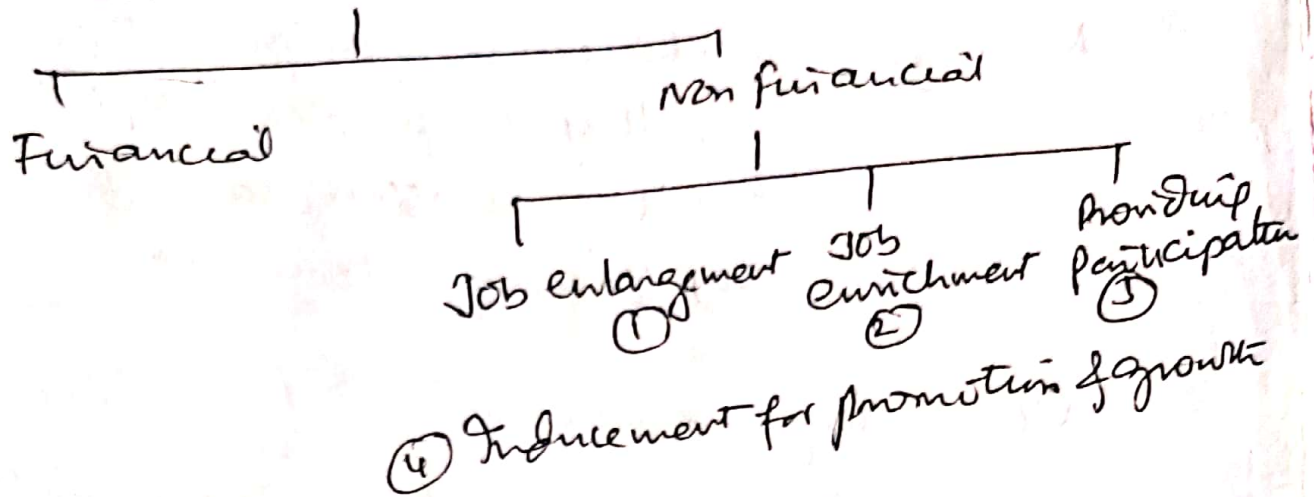 Financial
Non financial
Job enlargement
①
Job
enrichment
②
Providing
participation
③
④ Inducement for promotion & growth